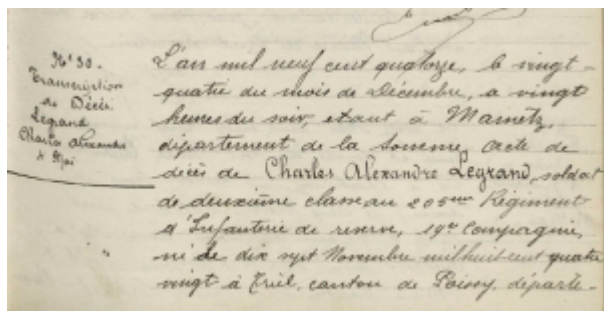 N° 30.
Transcription
de Décès
Legrand
Charles Alexandre
4 Mai
L'an mil neuf cent quatorze, le vingt-
quatre du mois de Décembre, a vingt
heures du soir, étant à Mametz,
département de la Somme, acte de
décès de Charles Alexandre Legrand, soldat
de deuxième classe au 205eme Régiment
d'Infanterie de reserve, 19e Compagnie,
né le dix sept Novembre mil huit cent quatre
vingt à Triel, canton de Poissy, départe-